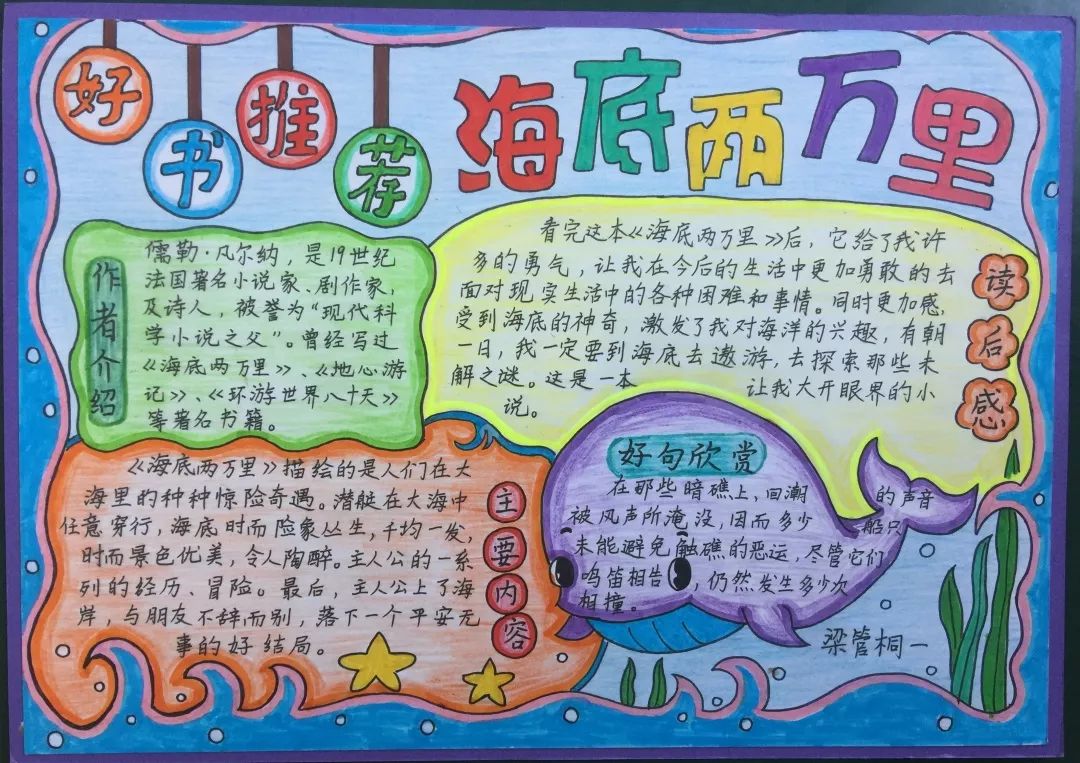 好书推荐
海底两万里
作者介绍
儒勒·凡尔纳，是19世纪
法国著名小说家、剧作家，
及诗人，被誉为“现代科
学小说之父”。曾经写过
《海底两万里》、《地心游
记》、《环游世界八十天》
等著名书籍。
看完这本《海底两万里》后，它给了我许
多的勇气，让我在今后的生活中更加勇敢的去
面对现实生活中的各种困难和事情。同时更加感
受到海底的神奇，激发了我对海洋的兴趣，有朝
一日，我一定要到海底去遨游，去探索那些未
解之谜。这是一本 让我大开眼界的小
说。
读后感
《海底两万里》描绘的是人们在大
海里的种种惊险奇遇。潜艇在大海中
任意穿行，海底时而险象丛生，千均一发，
时而景色优美，令人陶醉。主人公的一系
列的经历、冒险。最后，主人公上了海
岸，与朋友不辞而别，落下一个平安无
事的好结局。
主要内容
好句欣赏
在那些暗礁上，回潮的声音
被风声所淹没，因而多少船只
未能避免触礁的恶运，尽管它们
鸣笛相告，仍然发生多少次
相撞。
梁管桐一